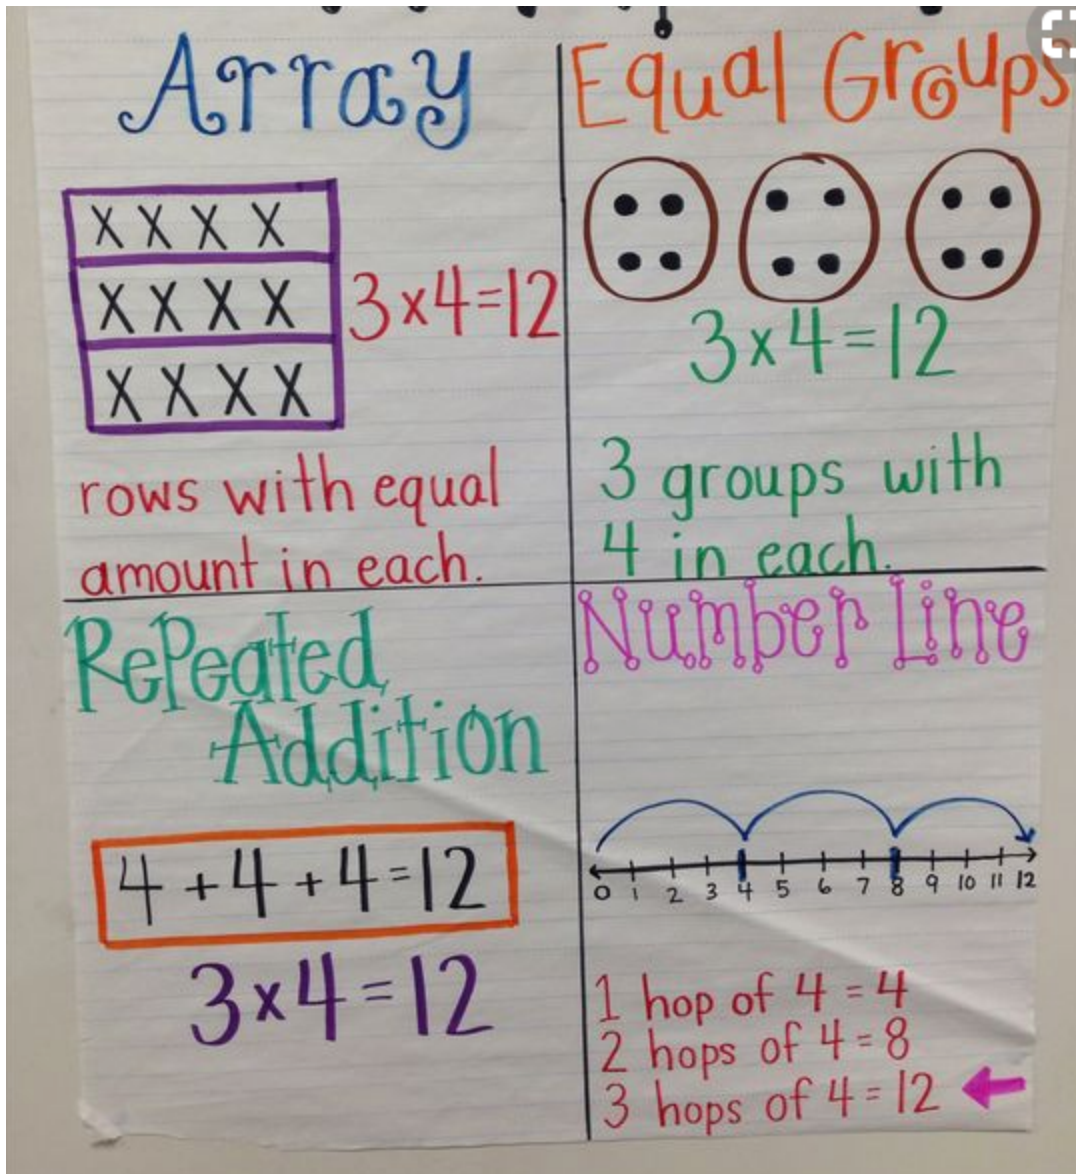 Array
X X X X
X X X X
X X X X
3x4=12
rows with equal
amount in each.
Equal Groups
3x4=12
3 groups with
4 in each.
RePeated
Addition
4+4+4=12
3x4=12
Number Line
0 1 2 3 4 5 6 7 8 9 10 11 12
1 hop of 4 = 4
2 hops of 4 = 8
3 hops of 4 = 12